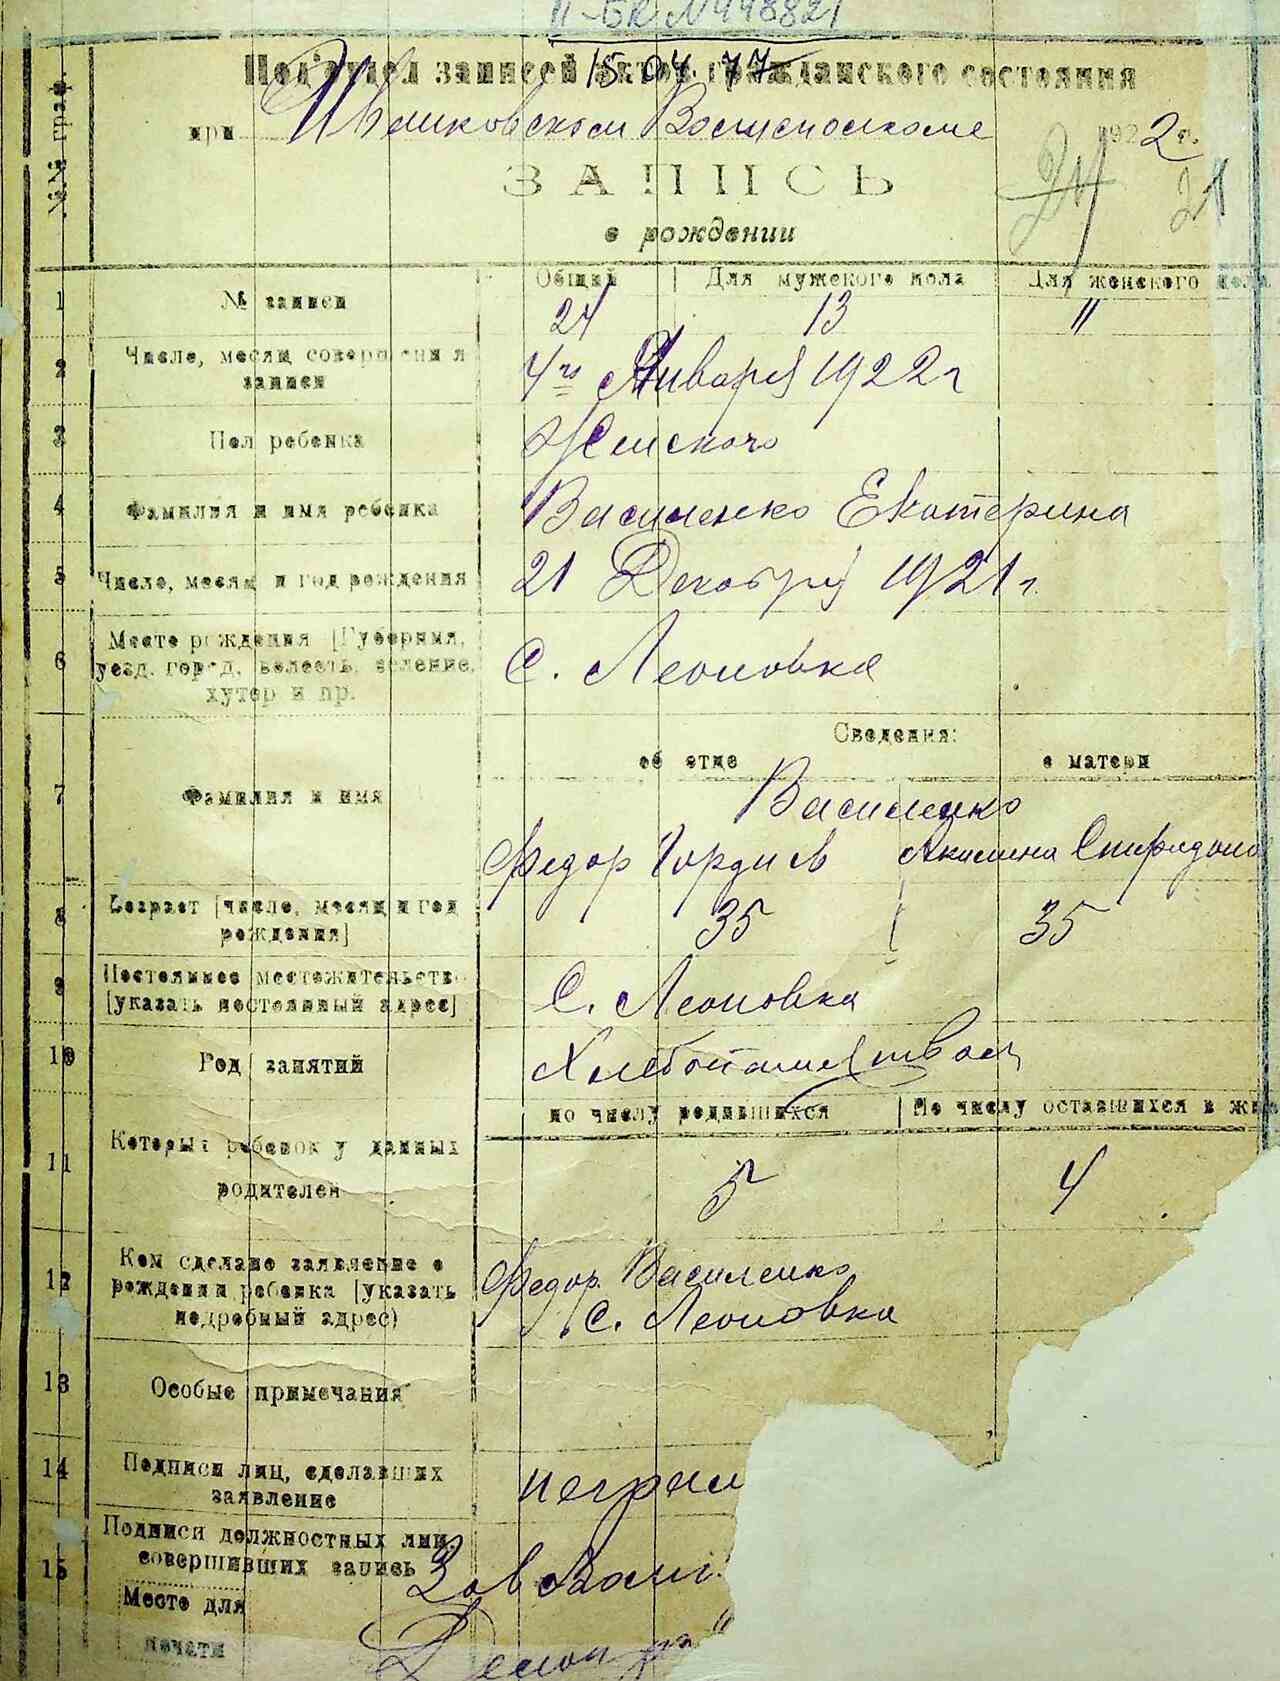 II-БК N448821
15 04 77
Подотдел записей актов гражданского состояния
при Волисполкоме 1922 г.
24
21
ЗАПИСЬ
о рождении
№№ граф.
Общий Для мужского пола Для женского пола
1 № записи 24 13 "
2 Число, месяц совершения записи 4го Января 1922 г
3 Пол ребенка Женского
4 Фамилия и имя ребенка Василенко Екатерина
5 Число, месяц и год рождения 21 Декабря 1921 г.
6 Место рождения [Губерния,
уезд. город, волость, селение,
хутор и пр. С. Леоновка
Сведения:
об отце о матери
7 Фамилия и имя Василенко
Федор Гордиев Акилина Спиридоно
8 Возраст [число, месяц и год
рождения] 35 35
9 Постоянное местожительство
[указать постоянный адрес] С. Леоновка
10 Род занятий Хлебопашеством
по числу родившихся По числу оставшихся в жив
11 Который ребенок у данных
родителей 5 4
12 Кем сделано заявление о
рождении ребенка [указать
подробный адрес) Федор Василенко
С. Леоновка
13 Особые примечания
14 Подписи лиц, сделавших
заявление неграм
15 Подписи должностных лиц,
совершивших запись Зав
Место для
печати